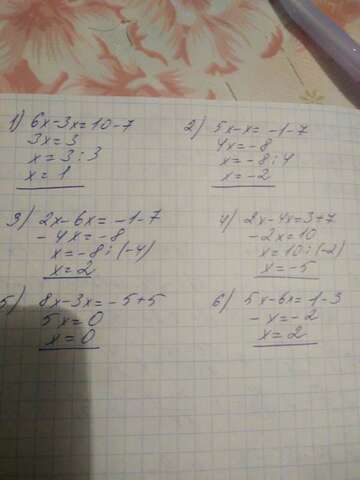 1) 6x-3x=10-7
3x=3
x=3:3
x=1
2) 5x-x=-1-7
4x=-8
x=-8:4
x=-2
3) 2x-6x=-1-7
-4x=-8
x=-8:(-4)
x=2
4) 2x-4x=3+7
-2x=10
x=10:(-2)
x=-5
5) 8x-3x=-5+5
5x=0
x=0
6) 5x-6x=1-3
-x=-2
x=2